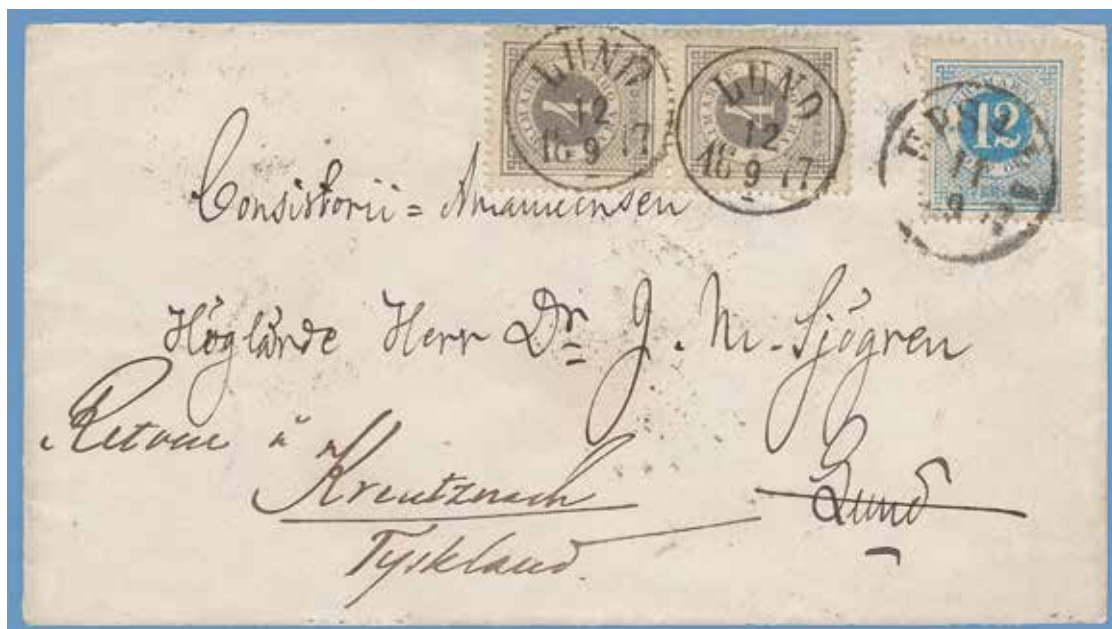 LUND
12
18 9 77
LUND
12
18 9 77
4
4
12
17
Consistorii = Amanuensen
Höglärde Herr Dr J. M. Sjögren
Lund
Retour à
Kreutznach
Tyskland